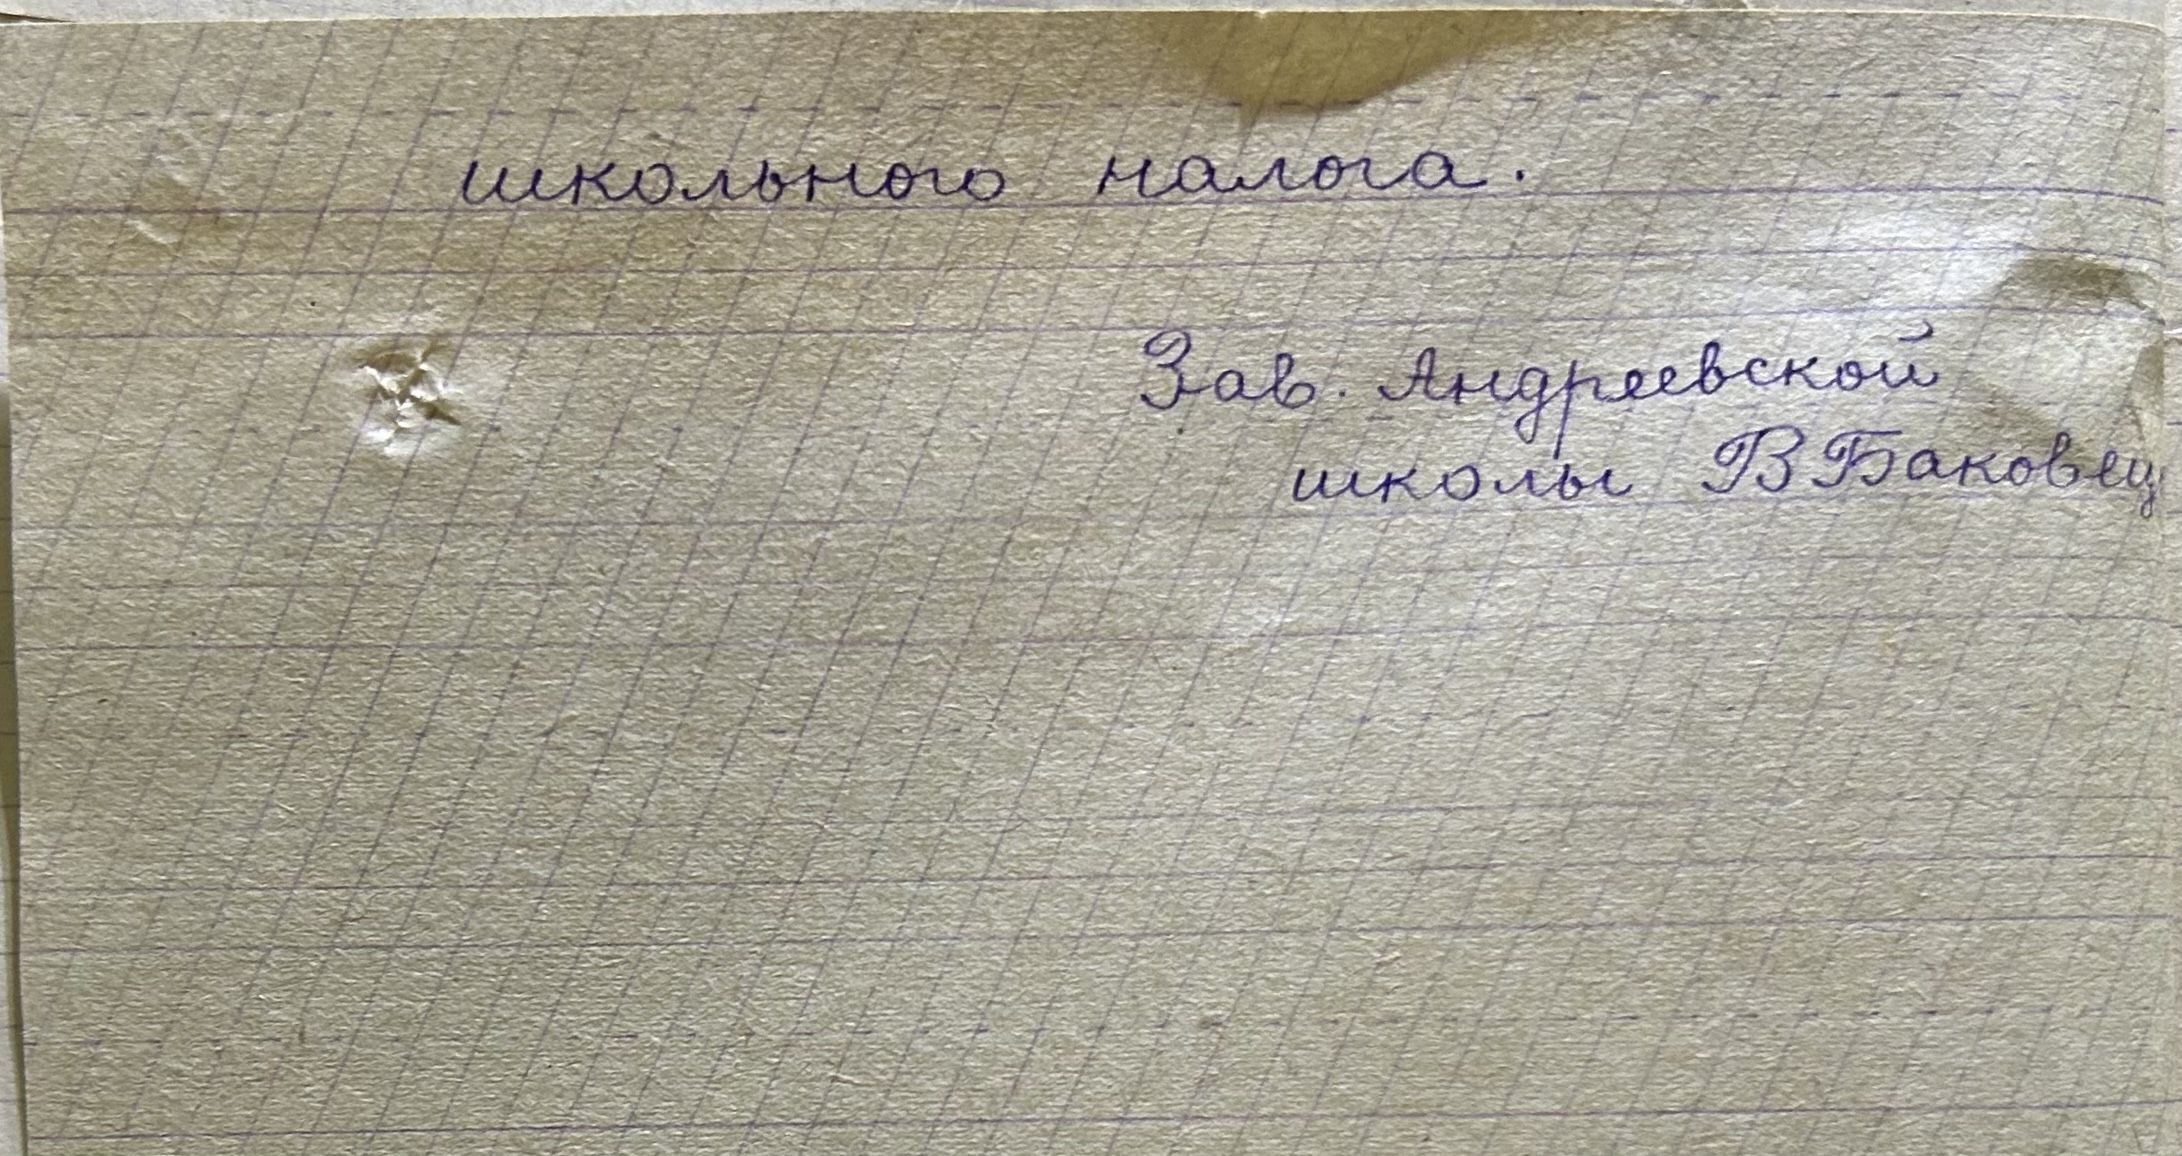 школьного налога.
Зав. Андреевской
школы В Баковец